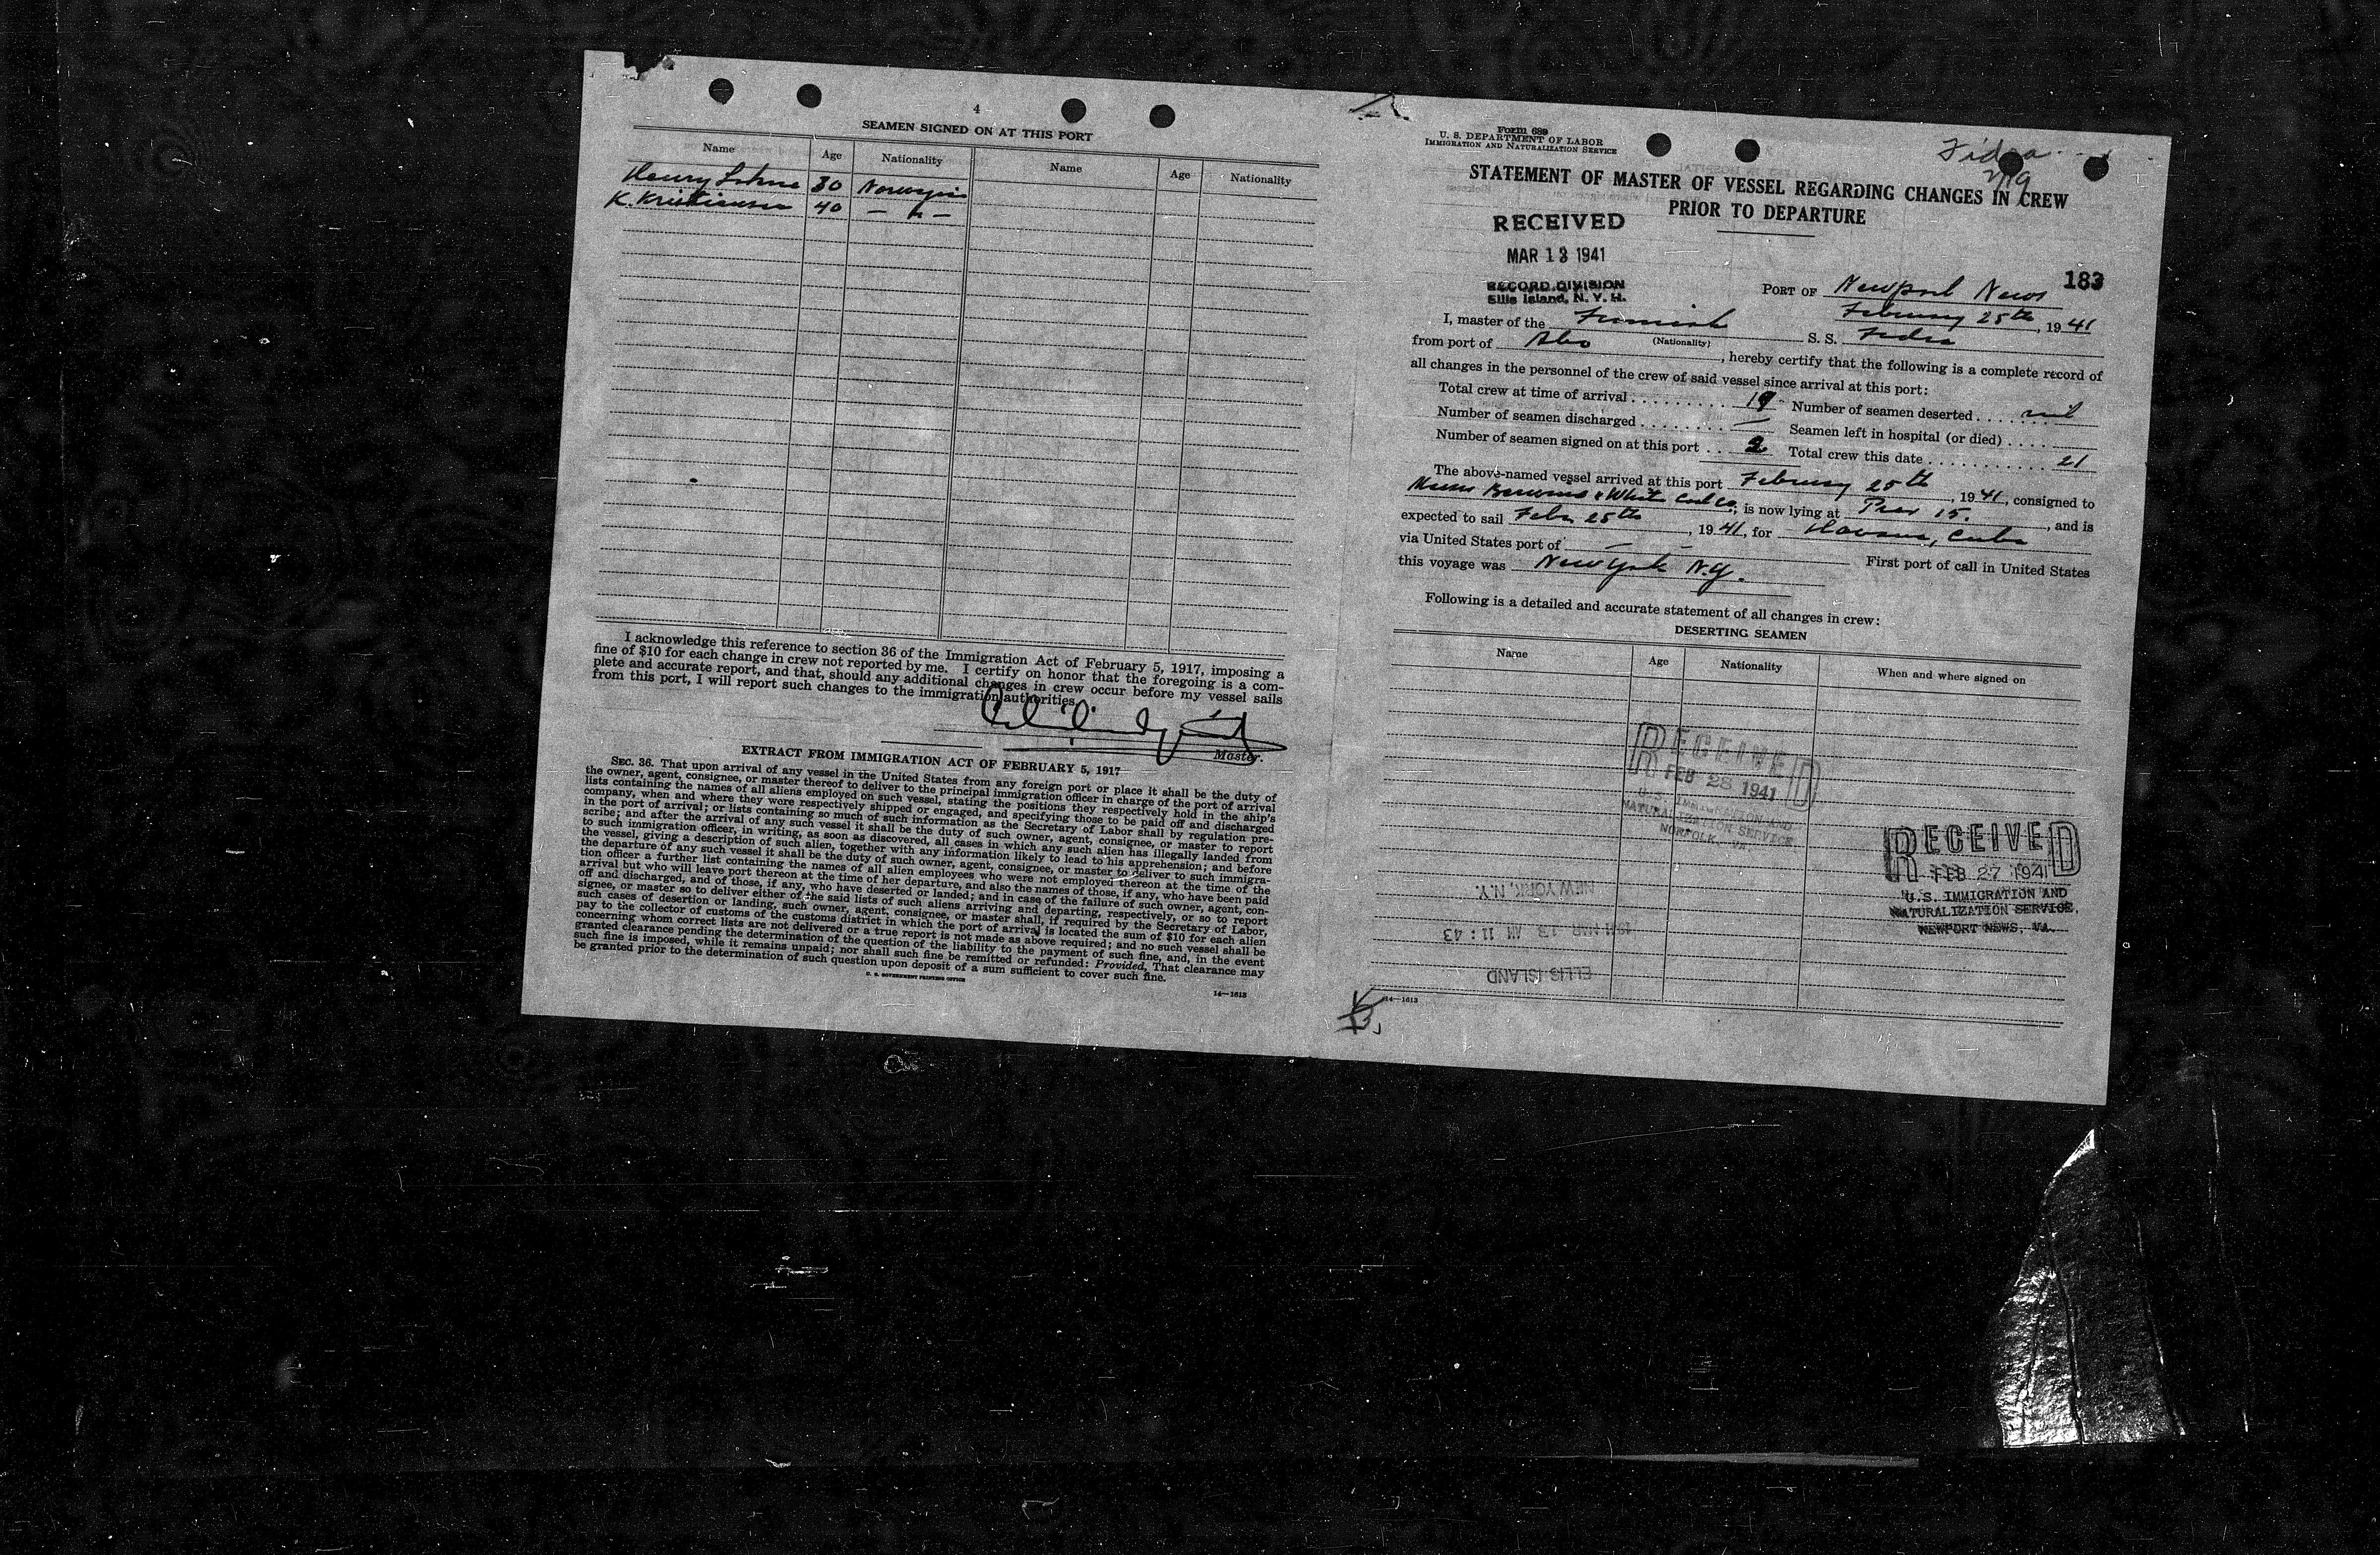 4
SEAMEN SIGNED ON AT THIS PORT
Name Age Nationality Name Age Nationality
Henry 30 Norwegian
K. Kristiansen 40 — " —
I acknowledge this reference to section 36 of the Immigration Act of February 5, 1917, imposing a
fine of $10 for each change in crew not reported by me. I certify on honor that the foregoing is a com-
plete and accurate report, and that, should any additional changes in crew occur before my vessel sails
from this port, I will report such changes to the immigration authorities.
Master.
EXTRACT FROM IMMIGRATION ACT OF FEBRUARY 5, 1917
SEC. 36. That upon arrival of any vessel in the United States from any foreign port or place it shall be the duty of
the owner, agent, consignee, or master thereof to deliver to the principal immigration officer in charge of the port of arrival
lists containing the names of all aliens employed on such vessel, stating the positions they respectively hold in the ship's
company, when and where they were respectively shipped or engaged, and specifying those to be paid off and discharged
in the port of arrival; or lists containing so much of such information as the Secretary of Labor shall by regulation pre-
scribe; and after the arrival of any such vessel it shall be the duty of such owner, agent, consignee, or master to report
to such immigration officer, in writing, as soon as discovered, all cases in which any such alien has illegally landed from
the vessel, giving a description of such alien, together with any information likely to lead to his apprehension; and before
the departure of any such vessel it shall be the duty of such owner, agent, consignee, or master to deliver to such immigra-
tion officer a further list containing the names of all alien employees who were not employed thereon at the time of the
arrival but who will leave port thereon at the time of her departure, and also the names of those, if any, who have been paid
off and discharged, and of those, if any, who have deserted or landed; and in case of the failure of such owner, agent, con-
signee, or master so to deliver either of the said lists of such aliens arriving and departing, respectively, or so to report
such cases of desertion or landing, such owner, agent, consignee, or master shall, if required by the Secretary of Labor,
pay to the collector of customs of the customs district in which the port of arrival is located the sum of $10 for each alien
concerning whom correct lists are not delivered or a true report is not made as above required; and no such vessel shall be
granted clearance pending the determination of the question of the liability to the payment of such fine, and, in the event
such fine is imposed, while it remains unpaid; nor shall such fine be remitted or refunded: Provided, That clearance may
be granted prior to the determination of such question upon deposit of a sum sufficient to cover such fine.
U. S. GOVERNMENT PRINTING OFFICE
14—1613
Form 689
U. S. DEPARTMENT OF LABOR
IMMIGRATION AND NATURALIZATION SERVICE
Fidra
2/19
STATEMENT OF MASTER OF VESSEL REGARDING CHANGES IN CREW
PRIOR TO DEPARTURE
RECEIVED
MAR 13 1941
RECORD DIVISION
Ellis Island, N. Y. H.
183
PORT OF Newport News
February 25th, 1941
I, master of the Finnish S. S. Fidra
(Nationality)
from port of Abo, hereby certify that the following is a complete record of
all changes in the personnel of the crew of said vessel since arrival at this port:
Total crew at time of arrival 19 Number of seamen deserted nil
Number of seamen discharged — Seamen left in hospital (or died)
Number of seamen signed on at this port 2 Total crew this date 21
The above-named vessel arrived at this port February 25th, 1941, consigned to
& White Coal Co, is now lying at Pier 15., and is
expected to sail Feby 25th, 1941, for Havana, Cuba
via United States port of — — First port of call in United States
this voyage was New York N.Y.
Following is a detailed and accurate statement of all changes in crew:
DESERTING SEAMEN
Name Age Nationality When and where signed on
RECEIVED
FEB 28 1941
U. S. IMMIGRATION AND
NATURALIZATION SERVICE
NORFOLK, VA.
RECEIVED
FEB 27 1941
U.S. IMMIGRATION AND
NATURALIZATION SERVICE.
NEWPORT NEWS, VA.
ELLIS ISLAND
1941 MAR 13 AM 11:43
NEW YORK, N.Y.
14—1613